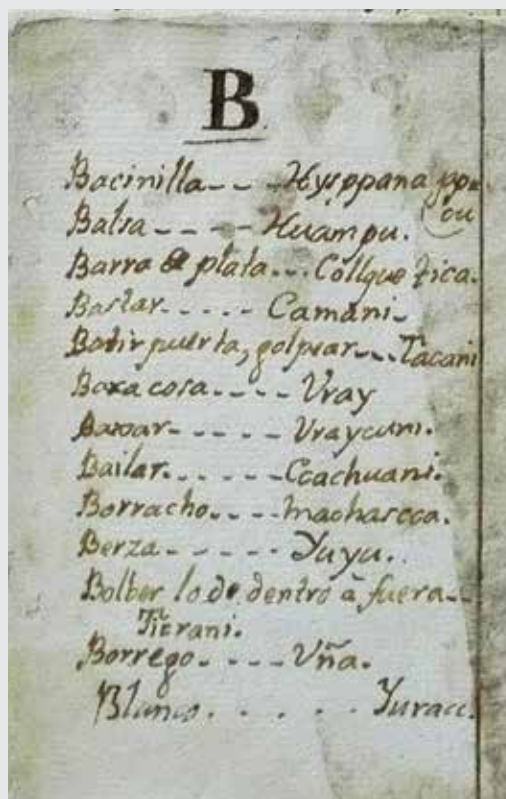 B
Bacinilla - - - Hysppana ppu=
cu
Balsa - - - - - Huampu.
Barra de plata - - - Collque tica.
Bastar - - - - - Camani -
Batir puerta, golpear - - - Tacani
Baxa cosa - - - - Vray
Baxar - - - - - Vraycuni.
Bailar - - - - - Ccachuani.
Borracho - - - - machascca.
Berza - - - - - - Yuyu.
Bolber lo de dentro à fuera - -
Ticrani.
Borrego - - - - - Vña.
Blanco . - . . . Yuracc.